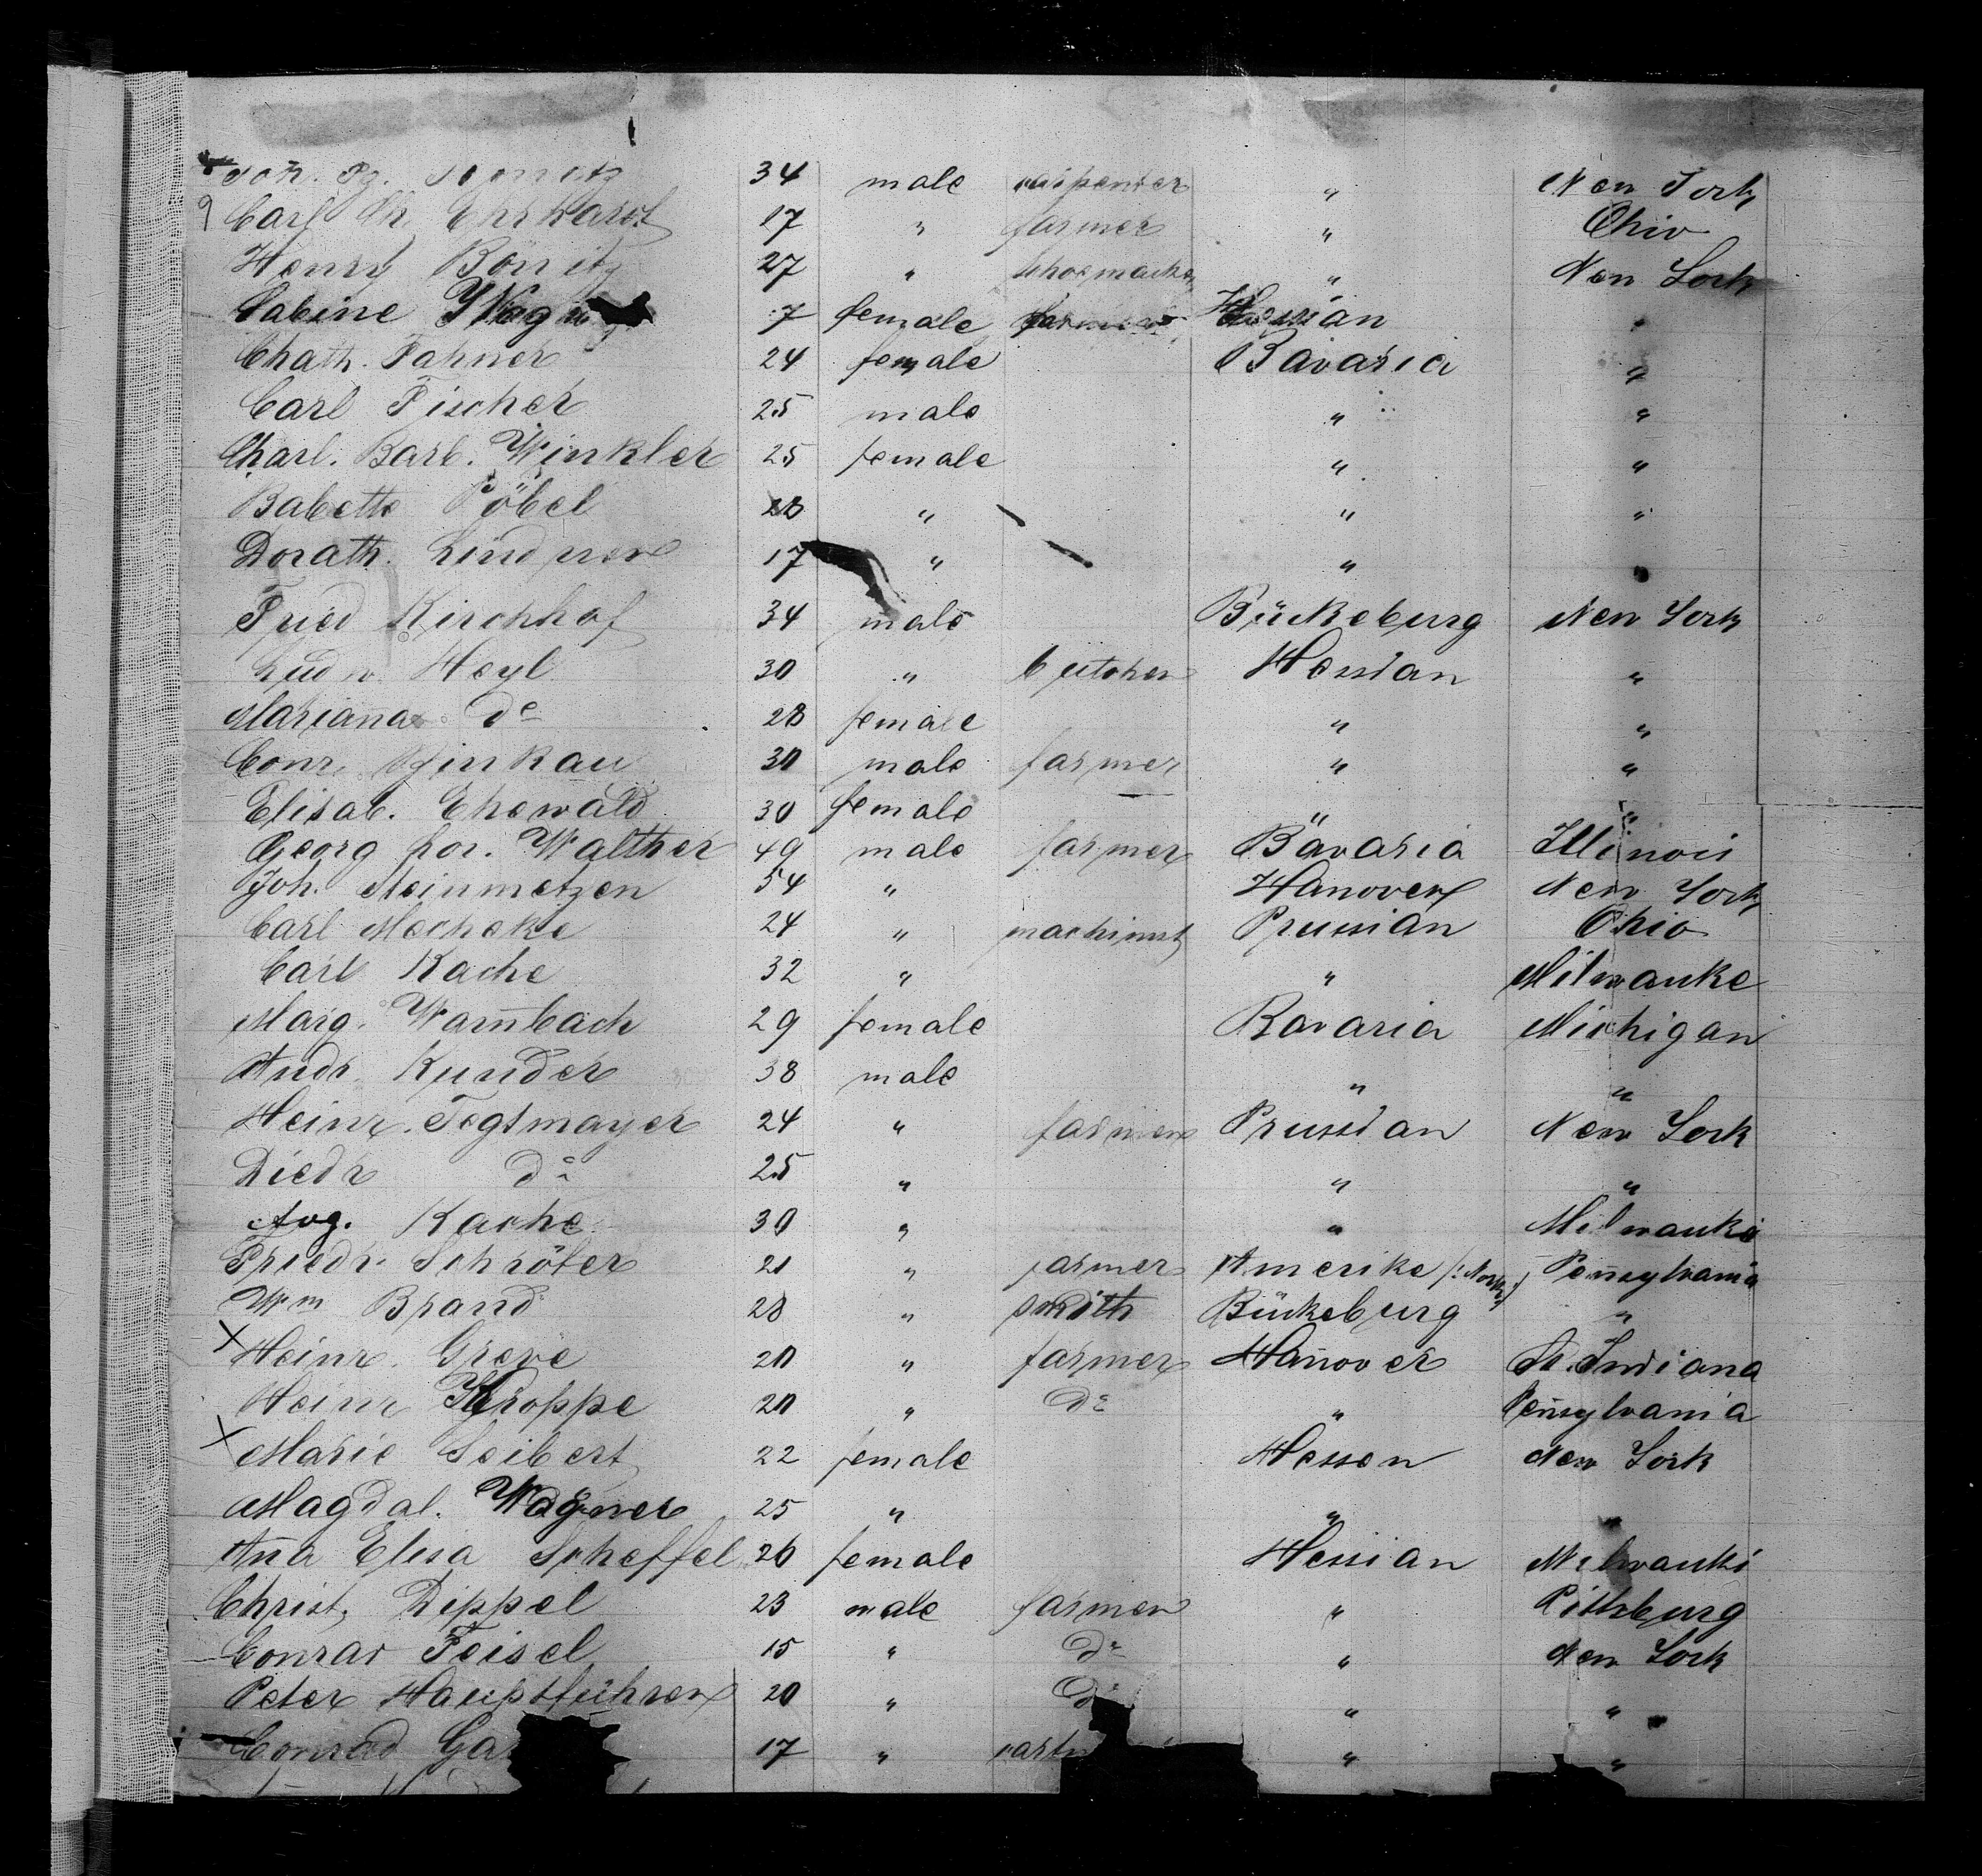 Joh. 34 male carpenter " New York
Carl Ch. Ehrhardt 17 " farmer " Ohio
Henry Börnitz 27 " schoemacker " New York
Sabine Wagn 7 female Hessian "
Chath. Fahner 24 female Bavaria "
Carl Fischer 25 male " "
Charl. Barb. Winkler 25 female " "
Babette Pöbel 28 " " "
Dorath. Lindner 17 " " "
Fried Kirchhof 34 male Bückeburg New York
Ludw. Heyl 30 " butcher Hessian "
Mariana do 28 female " "
Conr. 30 male farmer " "
Elisab. Ehewald 30 female " "
Georg Lor. Walther 49 male farmer Bavaria Illinois
Joh. Steinmetzen 54 " Hanover New York
Carl Mecheke 24 " machinist Prussian Ohio
Carl Kache 32 " " Milwauke
Marg. Wam̄bach 29 female Bavaria Michigan
Andr. Kunder 38 male " "
Heinr. Tegtmayer 24 " farmer Prussian New York
Diedr do 25 " " "
Aug. Kache 30 " " Milwauki
Friedr. Schröter 21 " farmer Amerike Pen̄sylvania
Wm Brand 28 " smith Bückeburg "
X Heinr. Greve 20 " farmer Han̄over St. Indiana
Heinr Kroppe 20 " do " Pen̄sylvania
X Marie Seibert 22 female Hessen New York
Magdal. Wagner 25 " " "
An̄a Elisa Scheffel 26 female Hessian Milwauki
Christ. Dippel 23 male farmer " Pittsburg
Conrad Feisel 15 " do " New York
Peter Hauptführer 20 " do " "
Conrad Ga 17 " " "